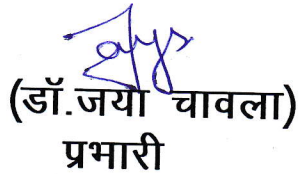 (डॉ.जया चावला)
प्रभारी